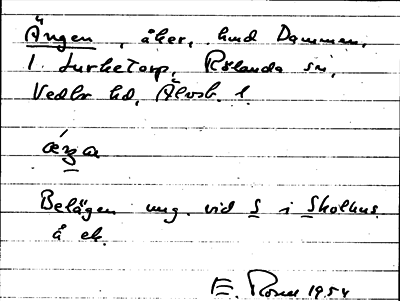 Ängen, åker, hmd Dammen,
1 Lurketorp, Rölanda sn,
Vedbo hd, Älvsb. l.
æŋa
Belägen ung. vid S i Skolhus
å ek.
E. Rosell 1954